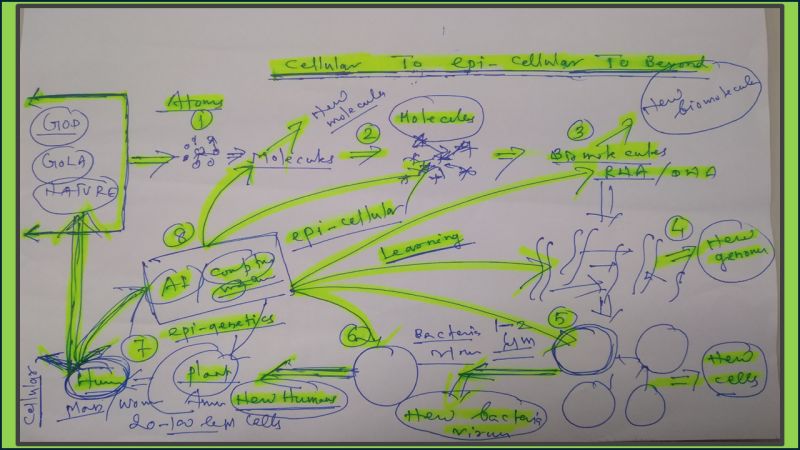 Cellular To epi-Cellular To Beyond
Atoms
1
New
molecules
2
Molecules
3
New
biomolecules
GOD
GOLA
NATURE
Molecules
Biomolecules
RNA/DNA
8
epi-cellular
Learning
4
New
genomes
AI
epi-genetics
7
6
Bacteria
1-2
μm
5
Cellular
plant
New Humans
New
cells
20-100 μm cells
New bacteria